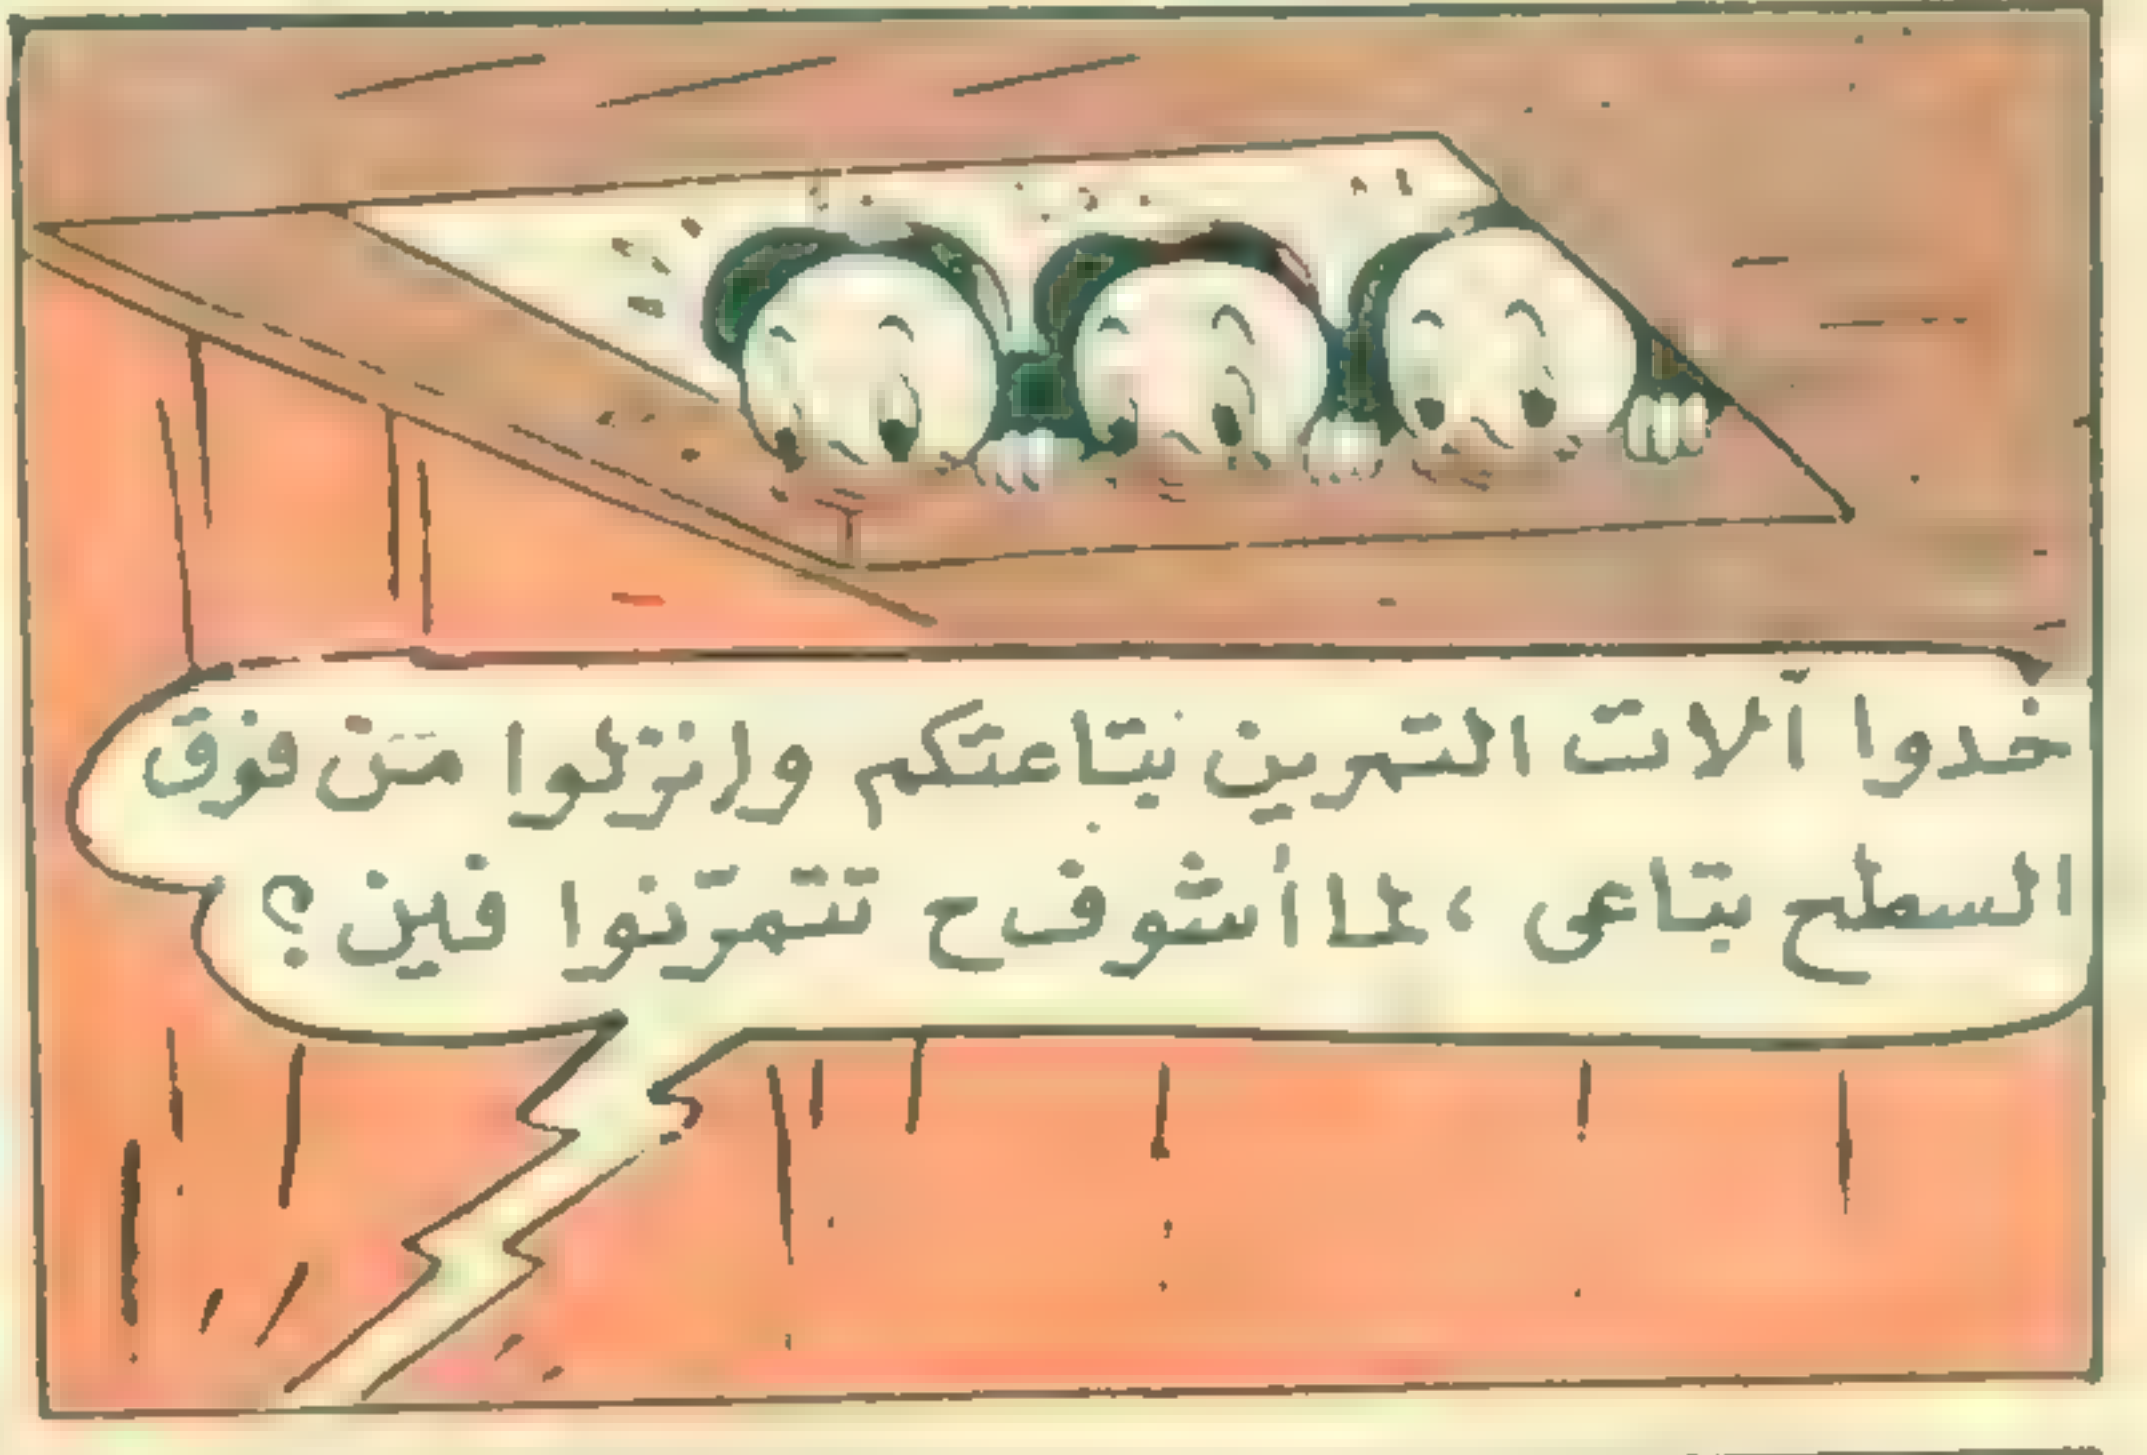 خدوا آلات التمرين بتاعتكم وانزلوا من فوق
السطح بتاعى ، لما أشوف ح تتمرّنوا فين ؟